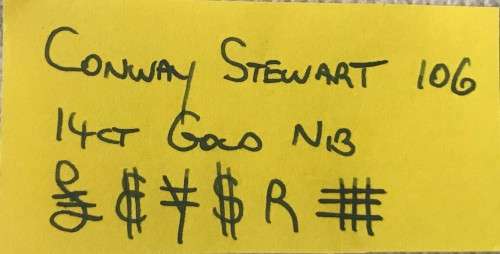 CONWAY STEWART 106
14CT GOLD NIB
£ ₵ ¥ $ R #